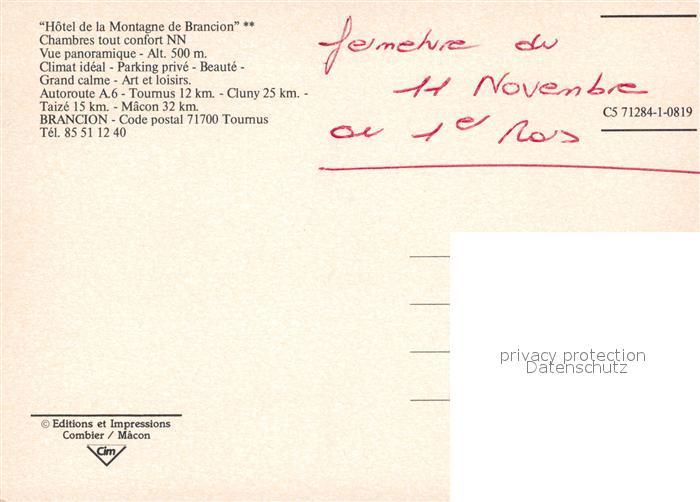 "Hôtel de la Montagne de Brancion" **
Chambres tout confort NN
Vue panoramique - Alt. 500 m.
Climat idéal - Parking privé - Beauté -
Grand calme - Art et loisirs.
Autoroute A.6 - Tournus 12 km. - Cluny 25 km. -
Taizé 15 km. - Mâcon 32 km.
BRANCION - Code postal 71700 Tournus
Tél. 85 51 12 40
fermeture du
11 Novembre
au 1er Mars
C5 71284-1-0819
privacy protection
Datenschutz
© Editions et Impressions
Combier / Mâcon
Cim